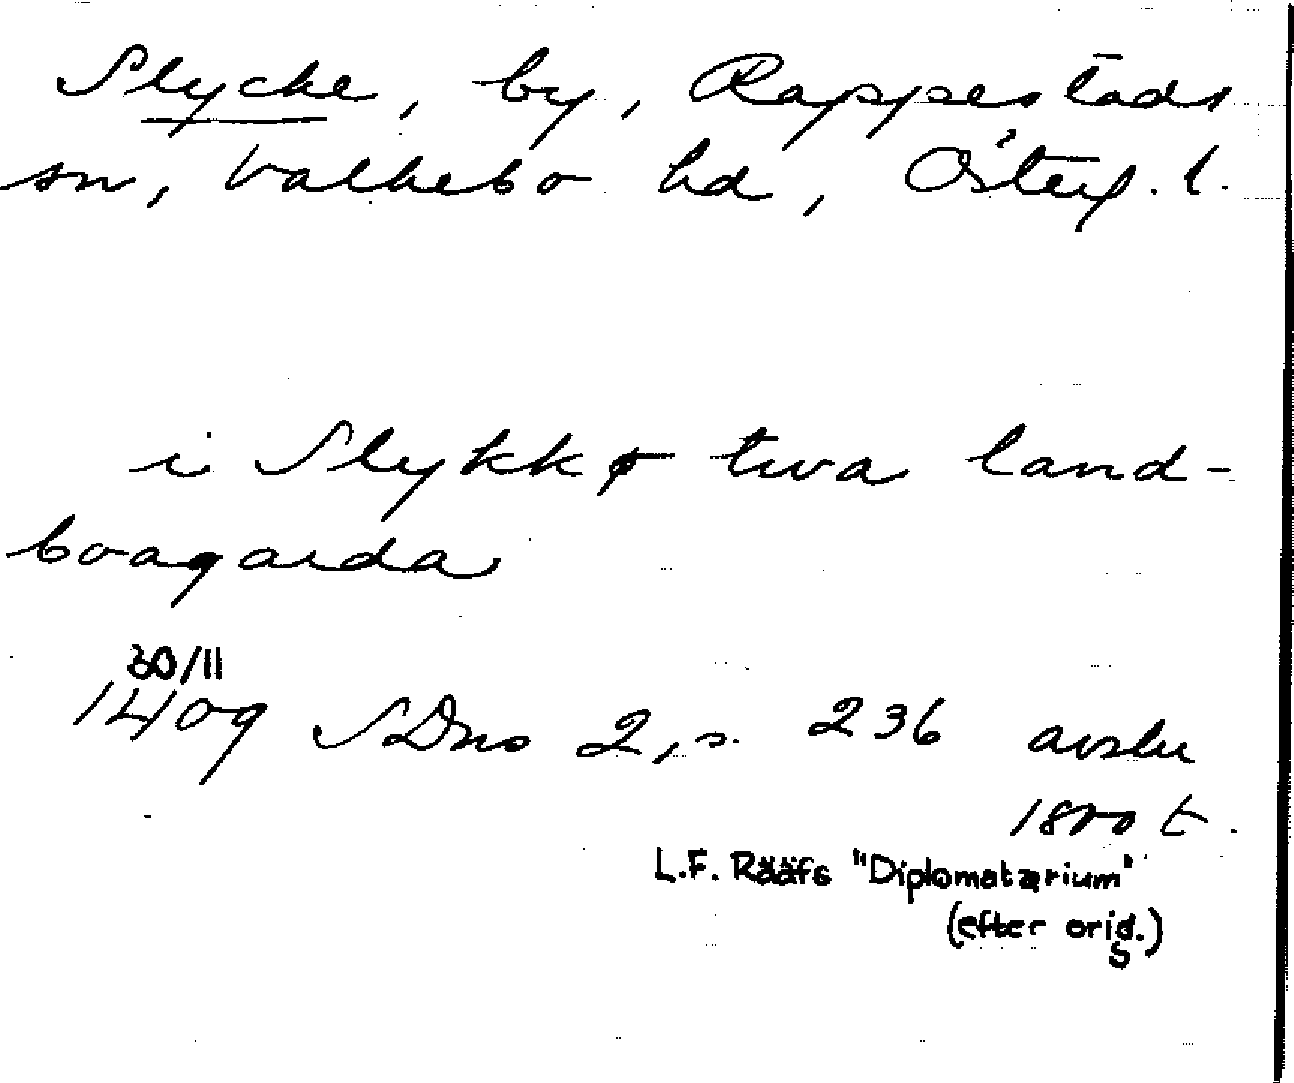 Slycke, by, Rappestads
sn, Valkebo hd, Österg. l.
i Slykkø twa land-
boagarda
30/11
1409 SDns 2, s. 236 avskr
1800 t.
L.F. Rääfs "Diplomatarium"
(efter orig.)